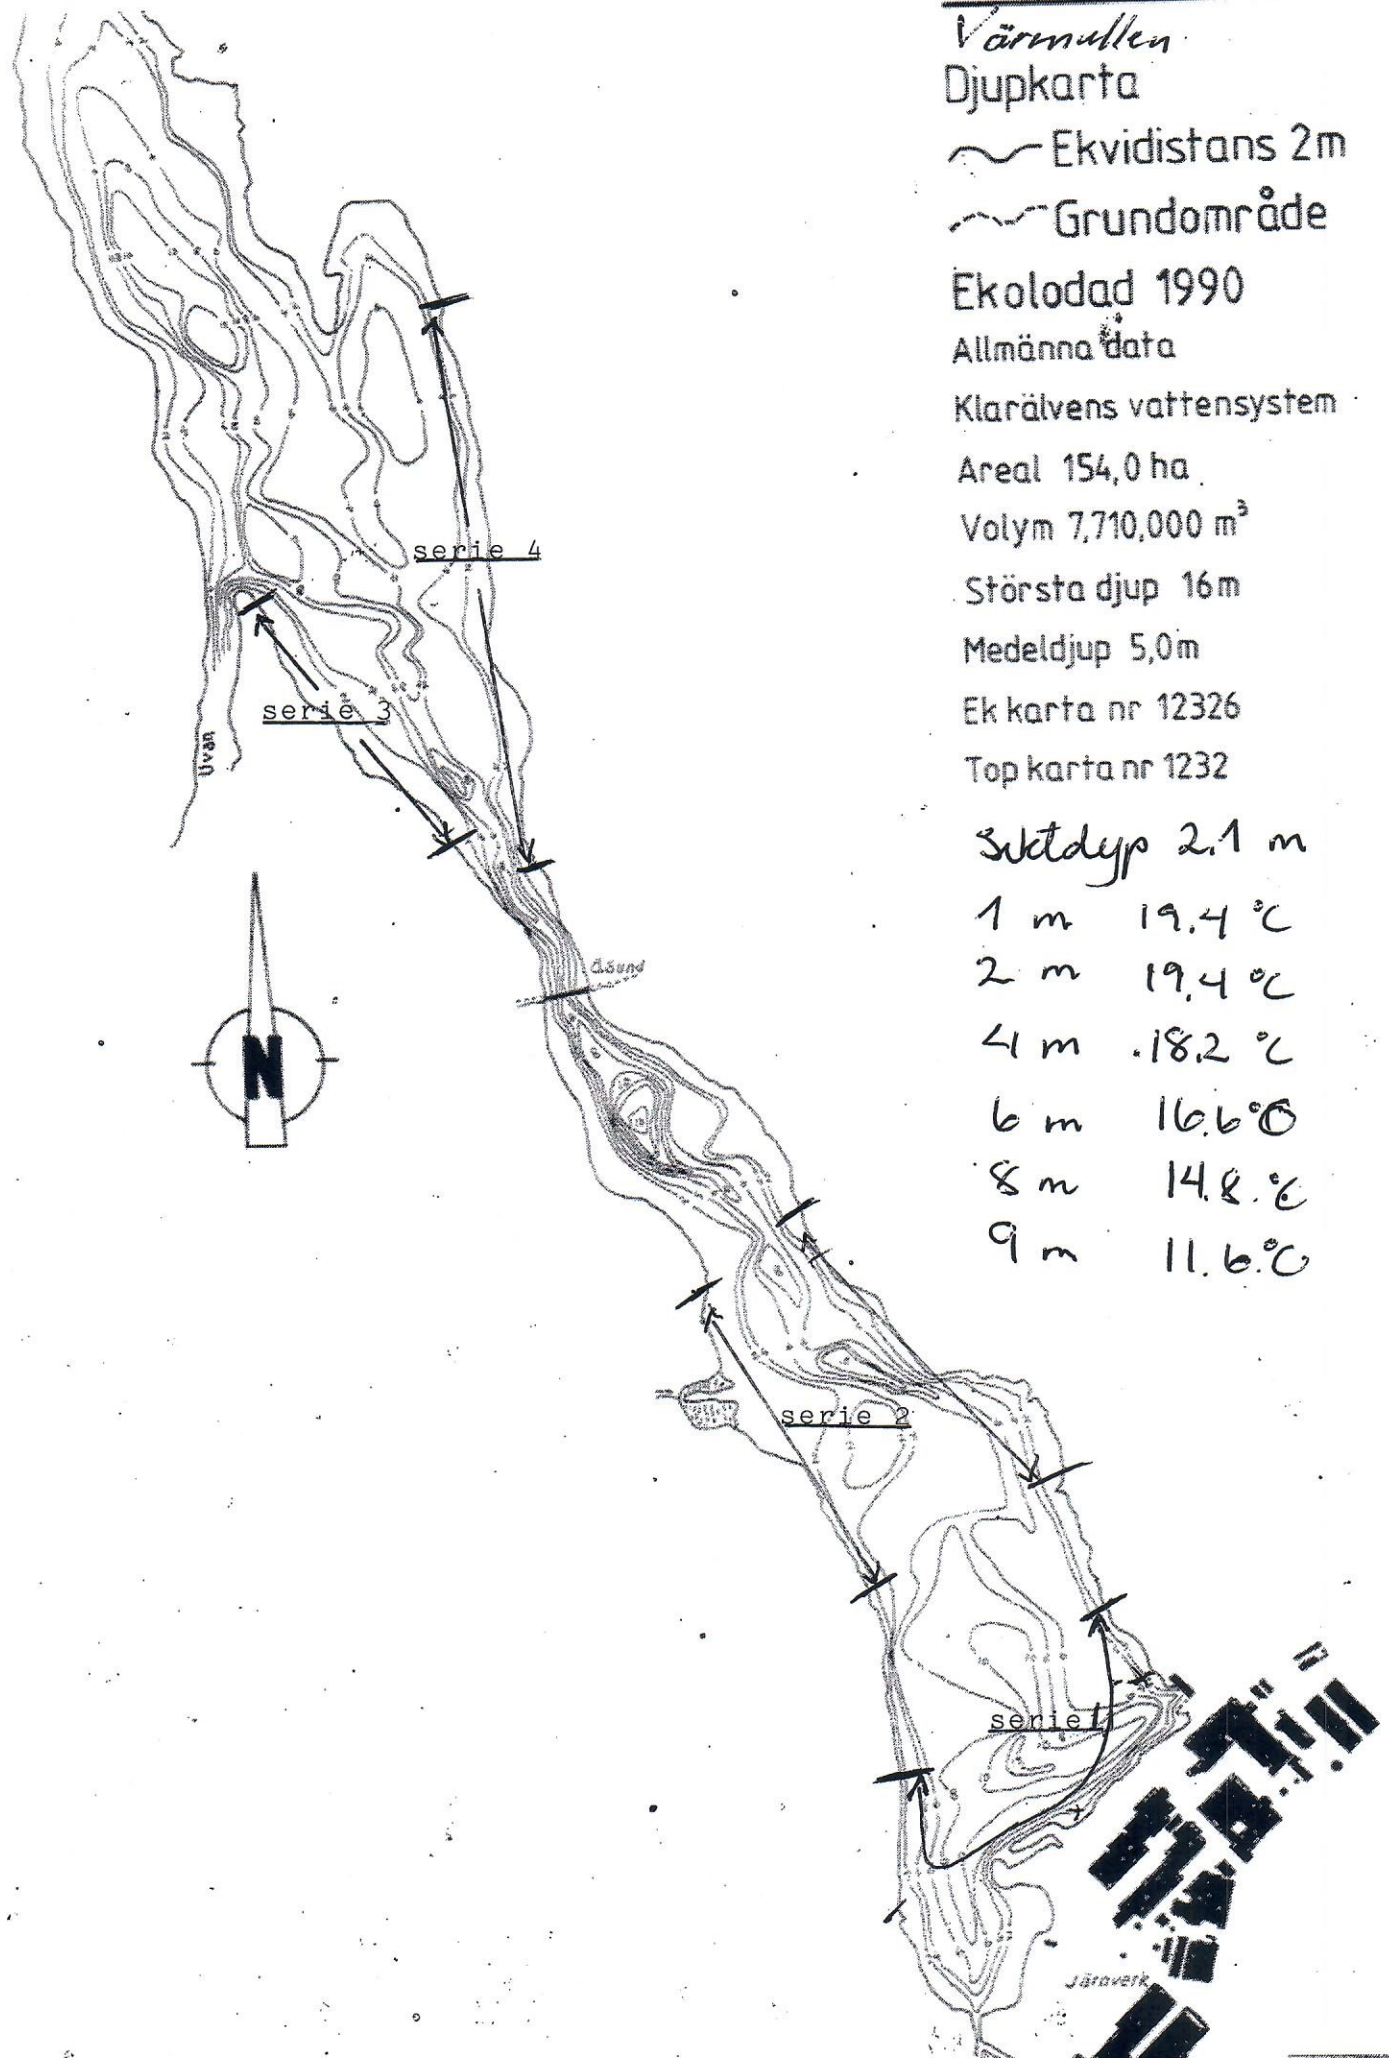 Värmullen
Djupkarta
Ekvidistans 2m
Grundområde
Ekolodad 1990
Allmänna data
Klarälvens vattensystem
Areal 154,0 ha
Volym 7,710,000 m³
Största djup 16m
Medeldjup 5,0m
Ek karta nr 12326
Top karta nr 1232
Siktdyp 2.1 m
1 m 19.4 °C
2 m 19.4 °C
4 m 18.2 °C
6 m 16.6 °C
8 m 14.8 °C
9 m 11.6 °C
serie 4
serie 3
Uvån
Åsund
N
serie 2
serie 1
Järnverk